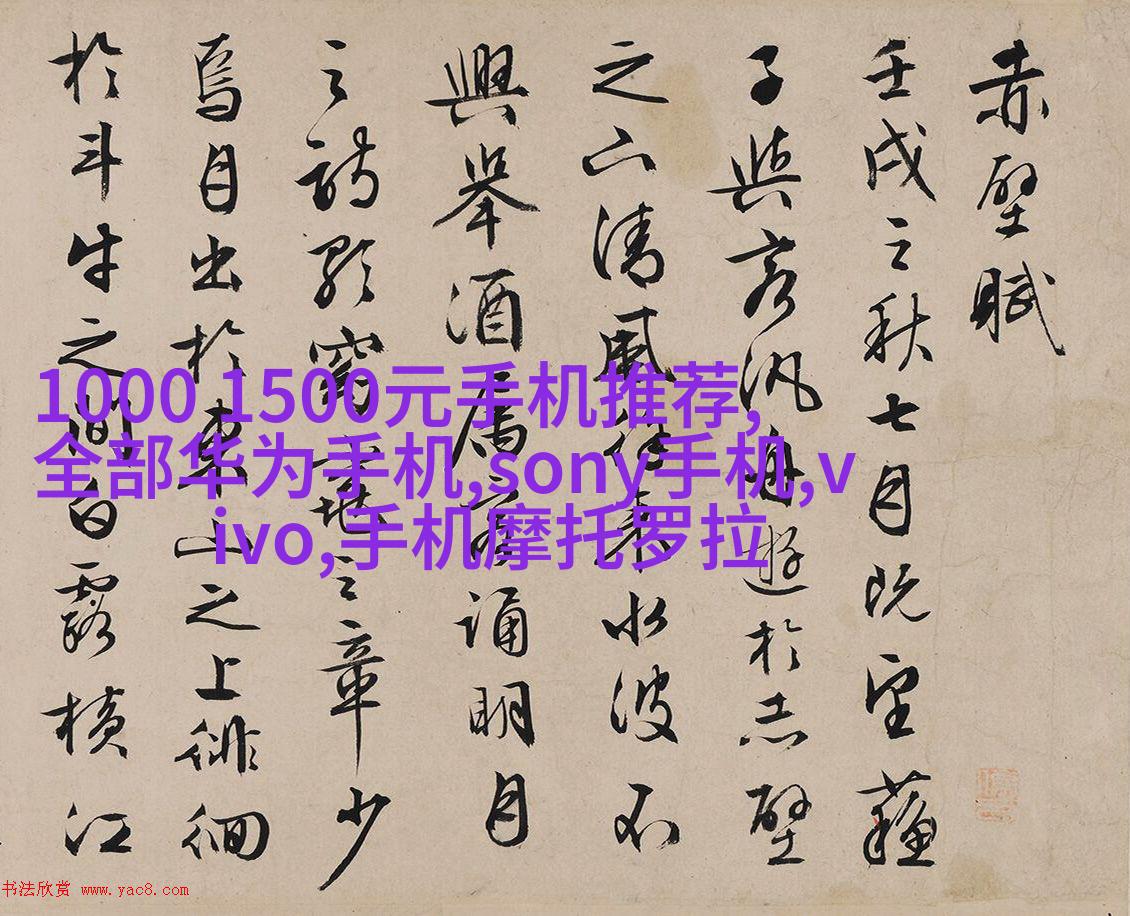 赤壁賦
壬戌之秋七月既望蘇
子與客汎舟遊於赤壁
之下清風徐來水波不
興舉酒屬客誦明月
之詩歌窈窕之章少
焉月出於東山之上徘徊
於斗牛之間白露橫江
1000 1500元手机推荐,
全部华为手机,sony手机,v
ivo,手机摩托罗拉
书法欣赏 www.yac8.com